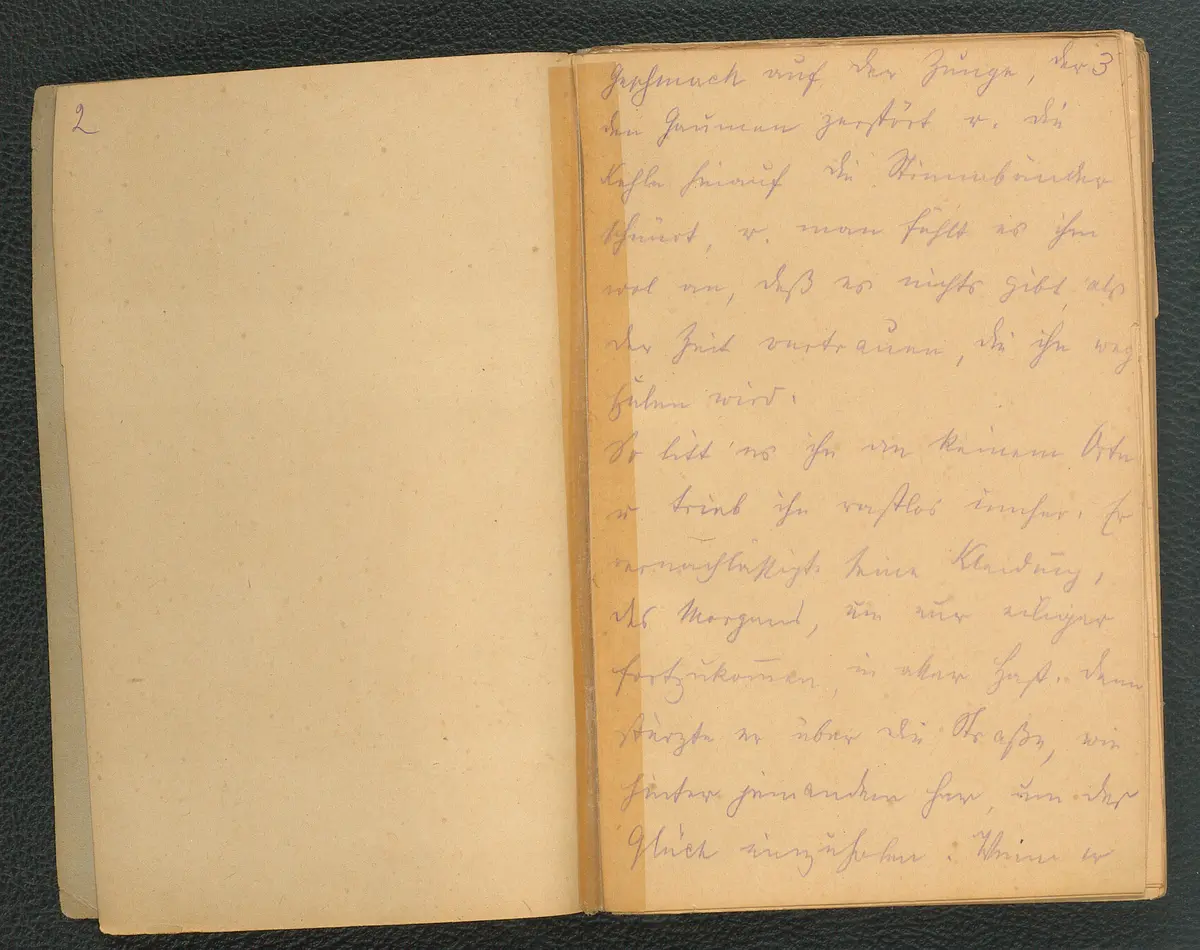 2
3
Geschmack auf der Zunge, der
den Gaumen zerstört u. die
Kehle hinauf die Stimmbänder
schnürt, u. man fühlt es ihm
wol an, daß es nichts gibt, als
der Zeit vertrauen, die ihn weg
spülen wird.
So litt es ihn an keinem Orte
u trieb ihn rastlos umher. Er
vernachlässigte seine Kleidung,
des Morgens, um nur eiliger
fortzukom̅en, in aller Hast. dann
stürzte er über die Straße, wie
hinter jemandem her, um das
Glück einzuholen. Wenn er